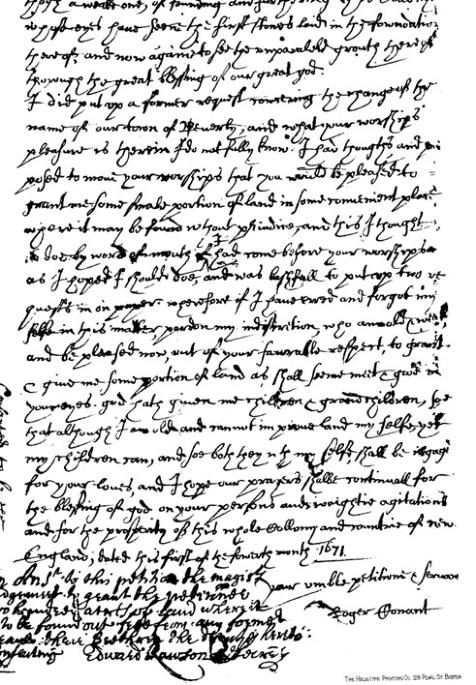 though a weake one, of founding and furthering
whose eyes have seene the first stones laid in the foundation
thereof, and now againe to see the unparaleld grouth thereof
through the great blessing of our great god.
I did put up a former request concerning the change of the
name of our town of Beverly, and what your worships
pleasure is therein I do not fully know. I had thoughts and pur
posed to move your worships that you would be pleased to
grant me some smale portion of land in some convenient place
where it may be found without prejudice, and this I thought
to doe by word of mouth if I had come before your worships
as I hoped I should doe, and was bashfull to put up two re
quests in on paper: wherefore if I have erred and forgot my
selfe in this matter pardon my indiscretion, who am old & weak,
and be pleased now, out of your favorable respect, to grant
& give me some portion of land as shall seeme meet & good in
your eyes. god hath given me children & grandchildren, soe
that although I am old and cannot improve land my selfe, yet
my children can, and soe both they with my selfe shall be ingaged
for your loves, and I hope our prayers shalbe continuall for
the blessing of god on your persons and weightie agitations
and for the prosperity of this whole Collony and countrie of new
England, dated this first of the fowerth month, 1671.
your umble petitioner & servant
Roger Conant
In Ansr. to this petition the magists
to grant the petitioner
two hundred acres of land where it
is to be found out free from any former
grant their Brethren the deputys hereto
consenting Edward Rawson Secrety
THE HELIOTYPE PRINTING CO. 126 PEARL ST. BOSTON